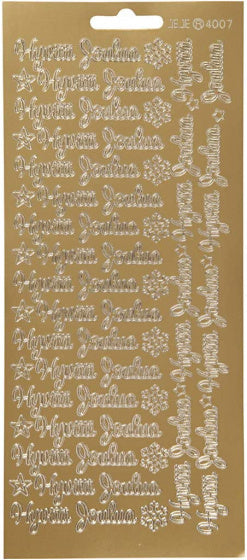 JEJE ® 4007
Hyvää Joulua
Hyvää Joulua
Hyvää Joulua
Hyvää Joulua
Hyvää Joulua
Hyvää Joulua
Hyvää Joulua
Hyvää Joulua
Hyvää Joulua
Hyvää Joulua
Hyvää Joulua
Hyvää Joulua
Hyvää Joulua
Hyvää Joulua
Hyvää Joulua
Hyvää Joulua
Hyvää Joulua
Hyvää Joulua Hyvää Joulua Hyvää Joulua Hyvää
Hyvää Joulua Hyvää Joulua Hyvää Joulua Joulua